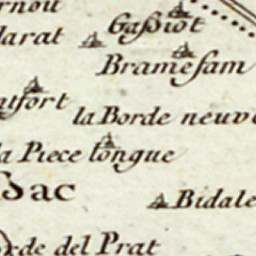 Gaſsiot
larat
Brameſam
la Borde neuve
la Piece longue
Bidale
de del Prat